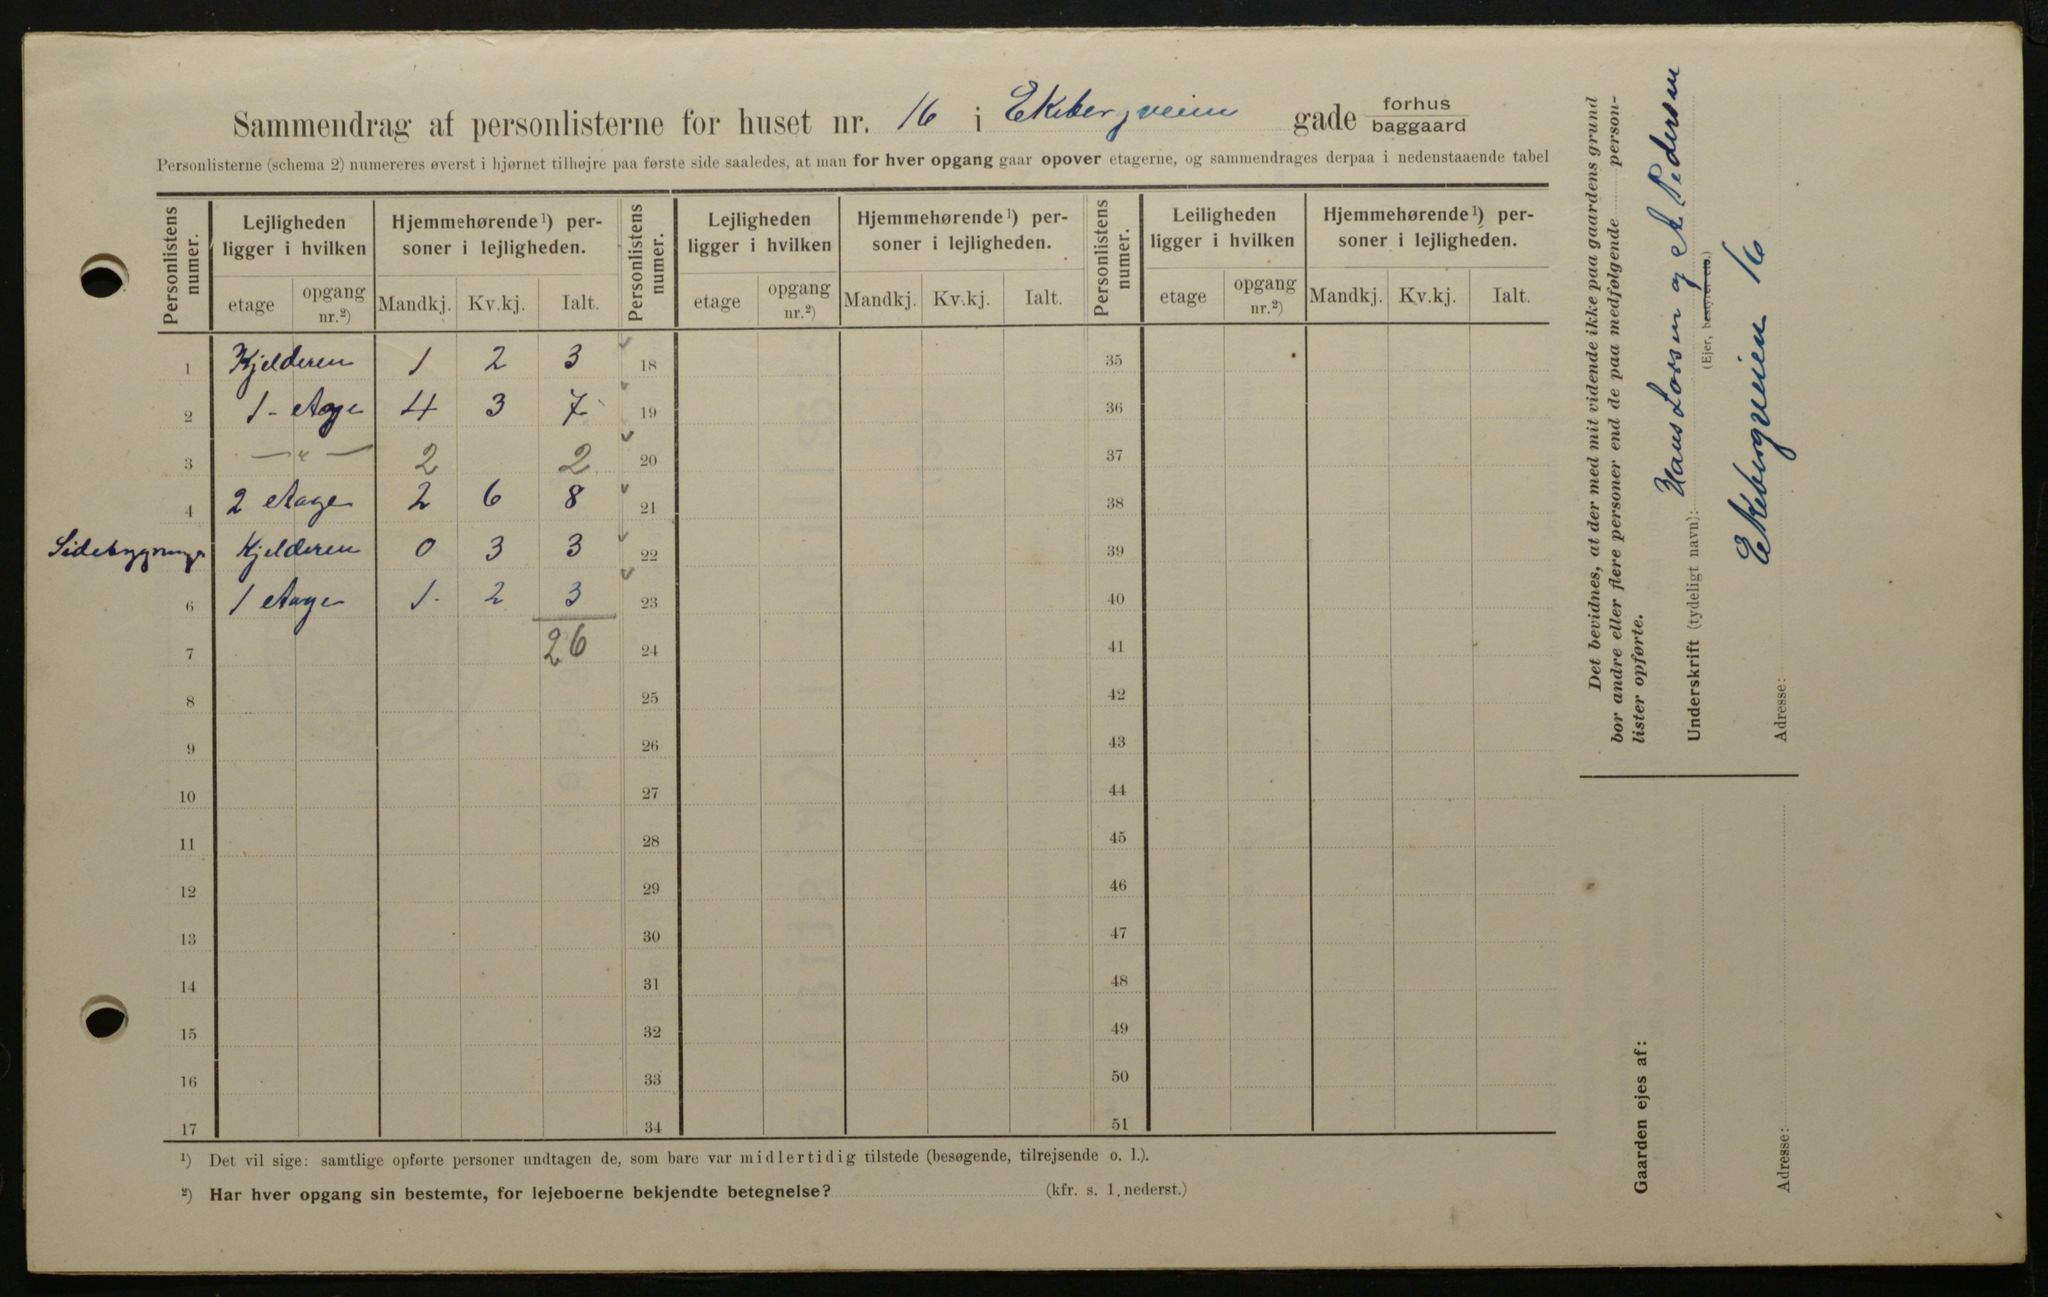 Sammendrag af personlisterne for huset nr. 16 i Ekebergveien gade forhus baggaard
Personlisterne (schema 2) numereres øverst i hjørnet tilhøjre paa første side saaledes, at man for hver opgang gaar opover etagerne, og sammendrages derpaa i nedenstaaende tabel
Personlistens numer. Lejligheden ligger i hvilken Hjemmehørende¹) personer i lejligheden. Personlistens numer. Lejligheden ligger i hvilken Hjemmehørende¹) personer i lejligheden. Personlistens numer. Leiligheden ligger i hvilken Hjemmehørende¹) personer i lejligheden.
etage opgang nr.²) Mandkj. Kv.kj. Ialt. etage opgang nr.²) Mandkj. Kv.kj. Ialt. etage opgang nr.²) Mandkj. Kv.kj. Ialt.
1 Kjelderen 1 2 3 18 35
2 1- Etage 4 3 7 19 36
3 — " — 2 2 20 37
4 2 Etage 2 6 8 21 38
Sidebygning Kjelderen 0 3 3 22 39
6 1 Etage 1 2 3 23 40
7 26 24 41
8 25 42
9 26 43
10 27 44
11 28 45
12 29 46
13 30 47
14 31 48
15 32 49
16 33 50
17 34 51
¹) Det vil sige: samtlige opførte personer undtagen de, som bare var midlertidig tilstede (besøgende, tilrejsende o. l.).
²) Har hver opgang sin bestemte, for lejeboerne bekjendte betegnelse? (kfr. s. 1, nederst.)
Det bevidnes, at der med mit vidende ikke paa gaardens grund
bor andre eller flere personer end de paa medfølgende person-
lister opførte.
Underskrift (tydeligt navn): Hans Larsen og A Pedersen
(Ejer, bestyrer etc.)
Ekebergveien 16
Adresse:
Gaarden ejes af:
Adresse: